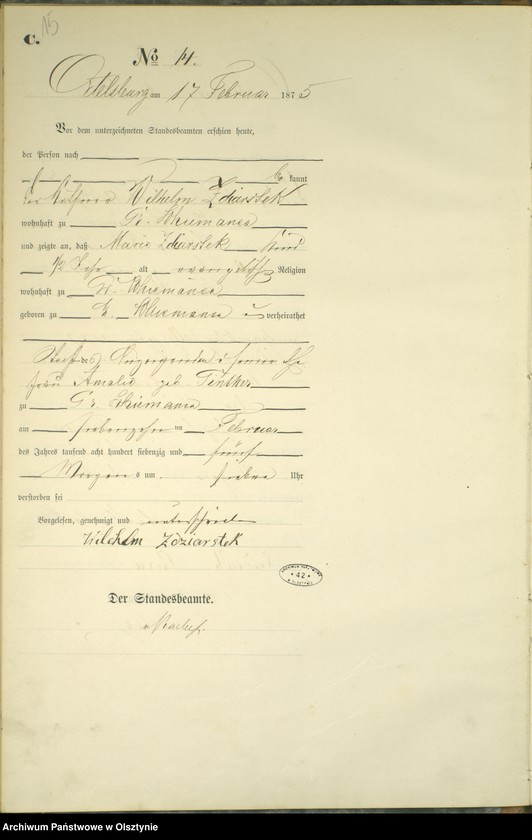 15
C.
No 14.
Ortelsburg am 17 Februar 1875
Vor dem unterzeichneten Standesbeamten erschien heute,
der Person nach
kannt
Wilhelm Zdiarstek
wohnhaft zu Gr. Schiemanen
und zeigte an, daß Marie Zdiarstek Kind
1/2 Jahr alt evangelisch Religion
wohnhaft zu Gr. Schiemanen
geboren zu Gr. Schiemanen verheirathet
Tochter des Anzeigenden u seiner Ehe
frau Amalie geb
zu Gr. Schiemanen
am siebenzehn ten Februar
des Jahrs tausend acht hundert siebenzig und fünf
Morgens um sieben Uhr
verstorben sei
Vorgelesen, genehmigt und unterschrieben
Wilehlm Zdziarstek
42
Der Standesbeamte.
Archiwum Państwowe w Olsztynie